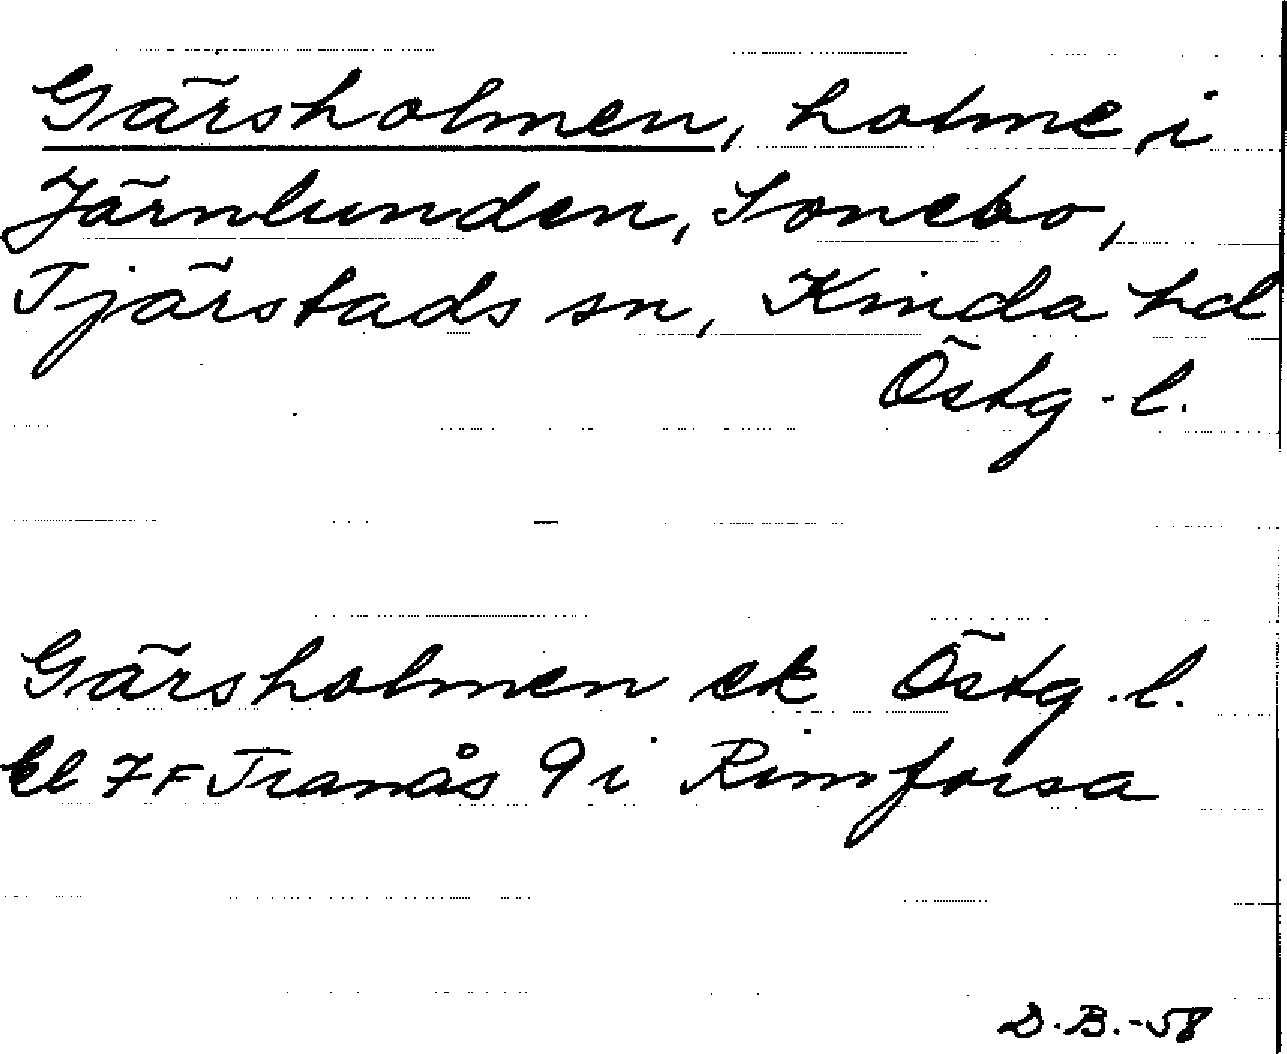 Gärsholmen, holme, i
Järnlunden, Sonebo,
Tjärstads sn, Kinda hd
Östg. l.
Gärsholmen ek Östg. l.
bl 7F Tranås 9 i Rimforsa
D.B.-58